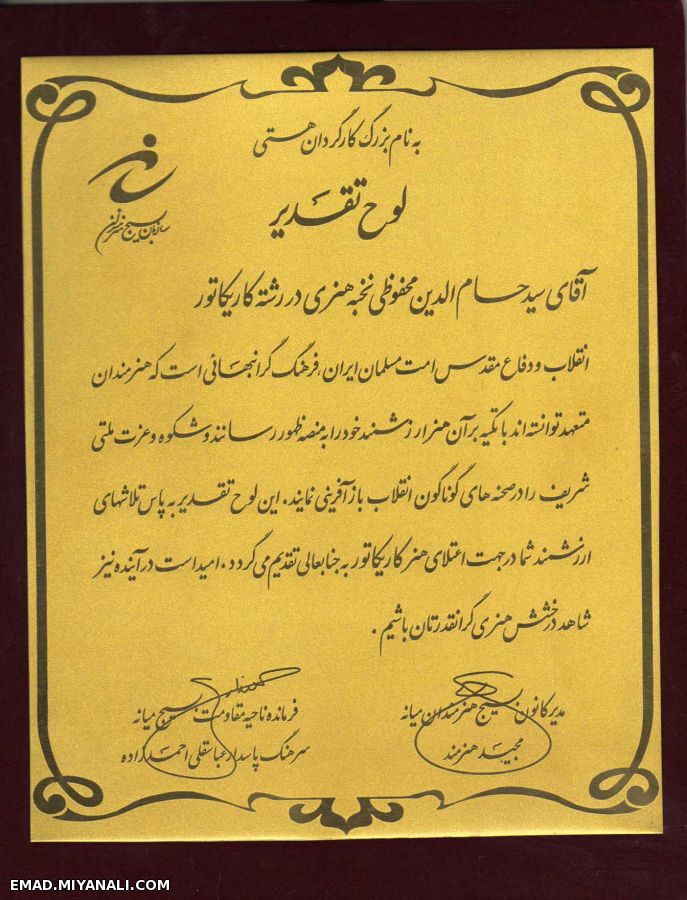 به نام بزرگ کارگردان هستی
سازمان بسیج هنرمندان
لوح تقدیر
آقای سید حسام الدین محفوظی نخبه هنری در رشته کاریکاتور
انقلاب و دفاع مقدس امت مسلمان ایران، فرهنگ گرانبهائی است که هنرمندان
متعهد توانسته اند با تکیه بر آن هنر ارزشمند خود را به منصه ظهور رسانند و شکوه و عزت ملتی
شریف را در صحنه های گوناگون انقلاب باز آفرینی نمایند. این لوح تقدیر به پاس تلاشهای
ارزشمند شما در جهت اعتلای هنر کاریکاتور به جنابعالی تقدیم می گردد. امید است در آینده نیز
شاهد درخشش هنری گرانقدرتان باشیم.
مدیر کانون بسیج هنرمندان میانه
مجید هنرمند
فرمانده ناحیه مقاومت بسیج میانه
سرهنگ پاسدار عباسقلی احمدزاده
EMAD.MIYANALI.COM